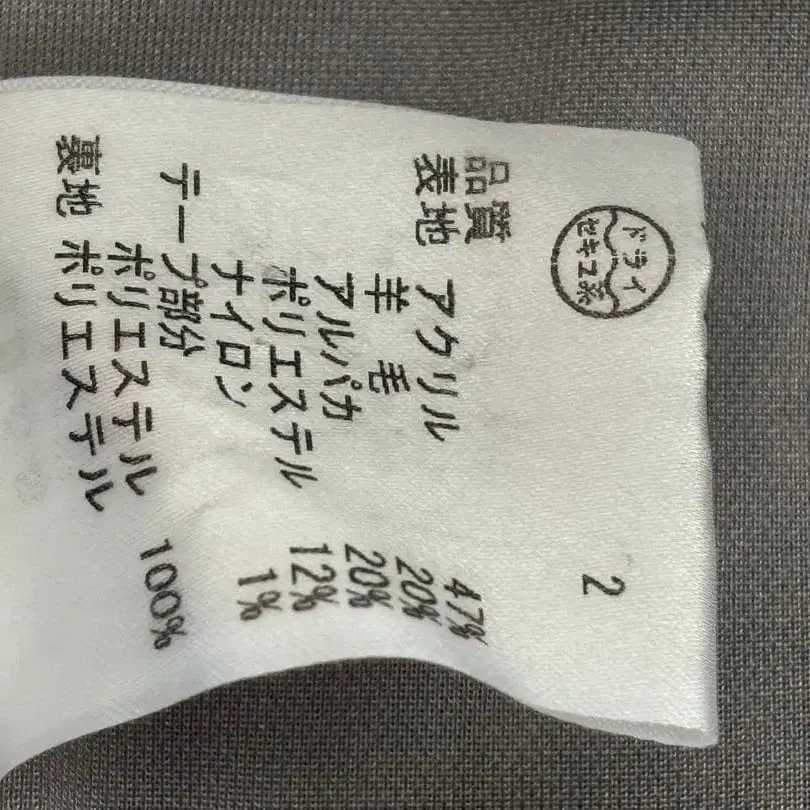 ドライ
セキユ系
2
品質
表地 アクリル 47%
羊毛 20%
アルパカ 20%
ポリエステル 12%
ナイロン 1%
テープ部分
ポリエステル 100%
裏地 ポリエステル